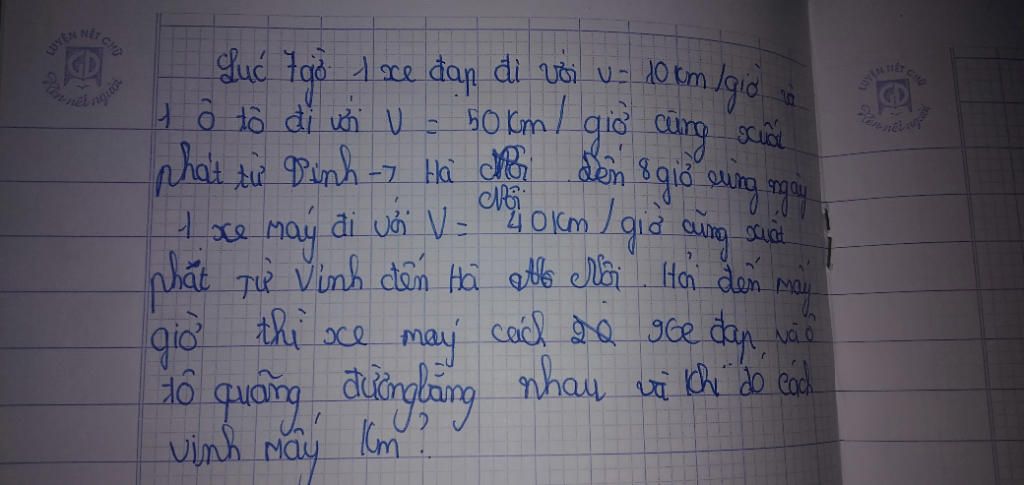 LUYỆN NÉT CHỮ
Rèn nết người
LUYỆN NÉT CHỮ
Rèn nết người
Lúc 7giờ 1 xe đạp đi với v = 10km/giờ và
1 ô tô đi với V = 50km/ giờ cũng xuất
phát từ Vinh → Hà Nội đến 8 giờ cùng ngày
1 xe máy đi với V = 40km/giờ cũng xuất
phát từ Vinh đến Hà Nội. Hỏi đến mấy
giờ thì xe máy cách xe đạp và ô
tô quãng đường bằng nhau và khi đó cách
Vinh mấy km?